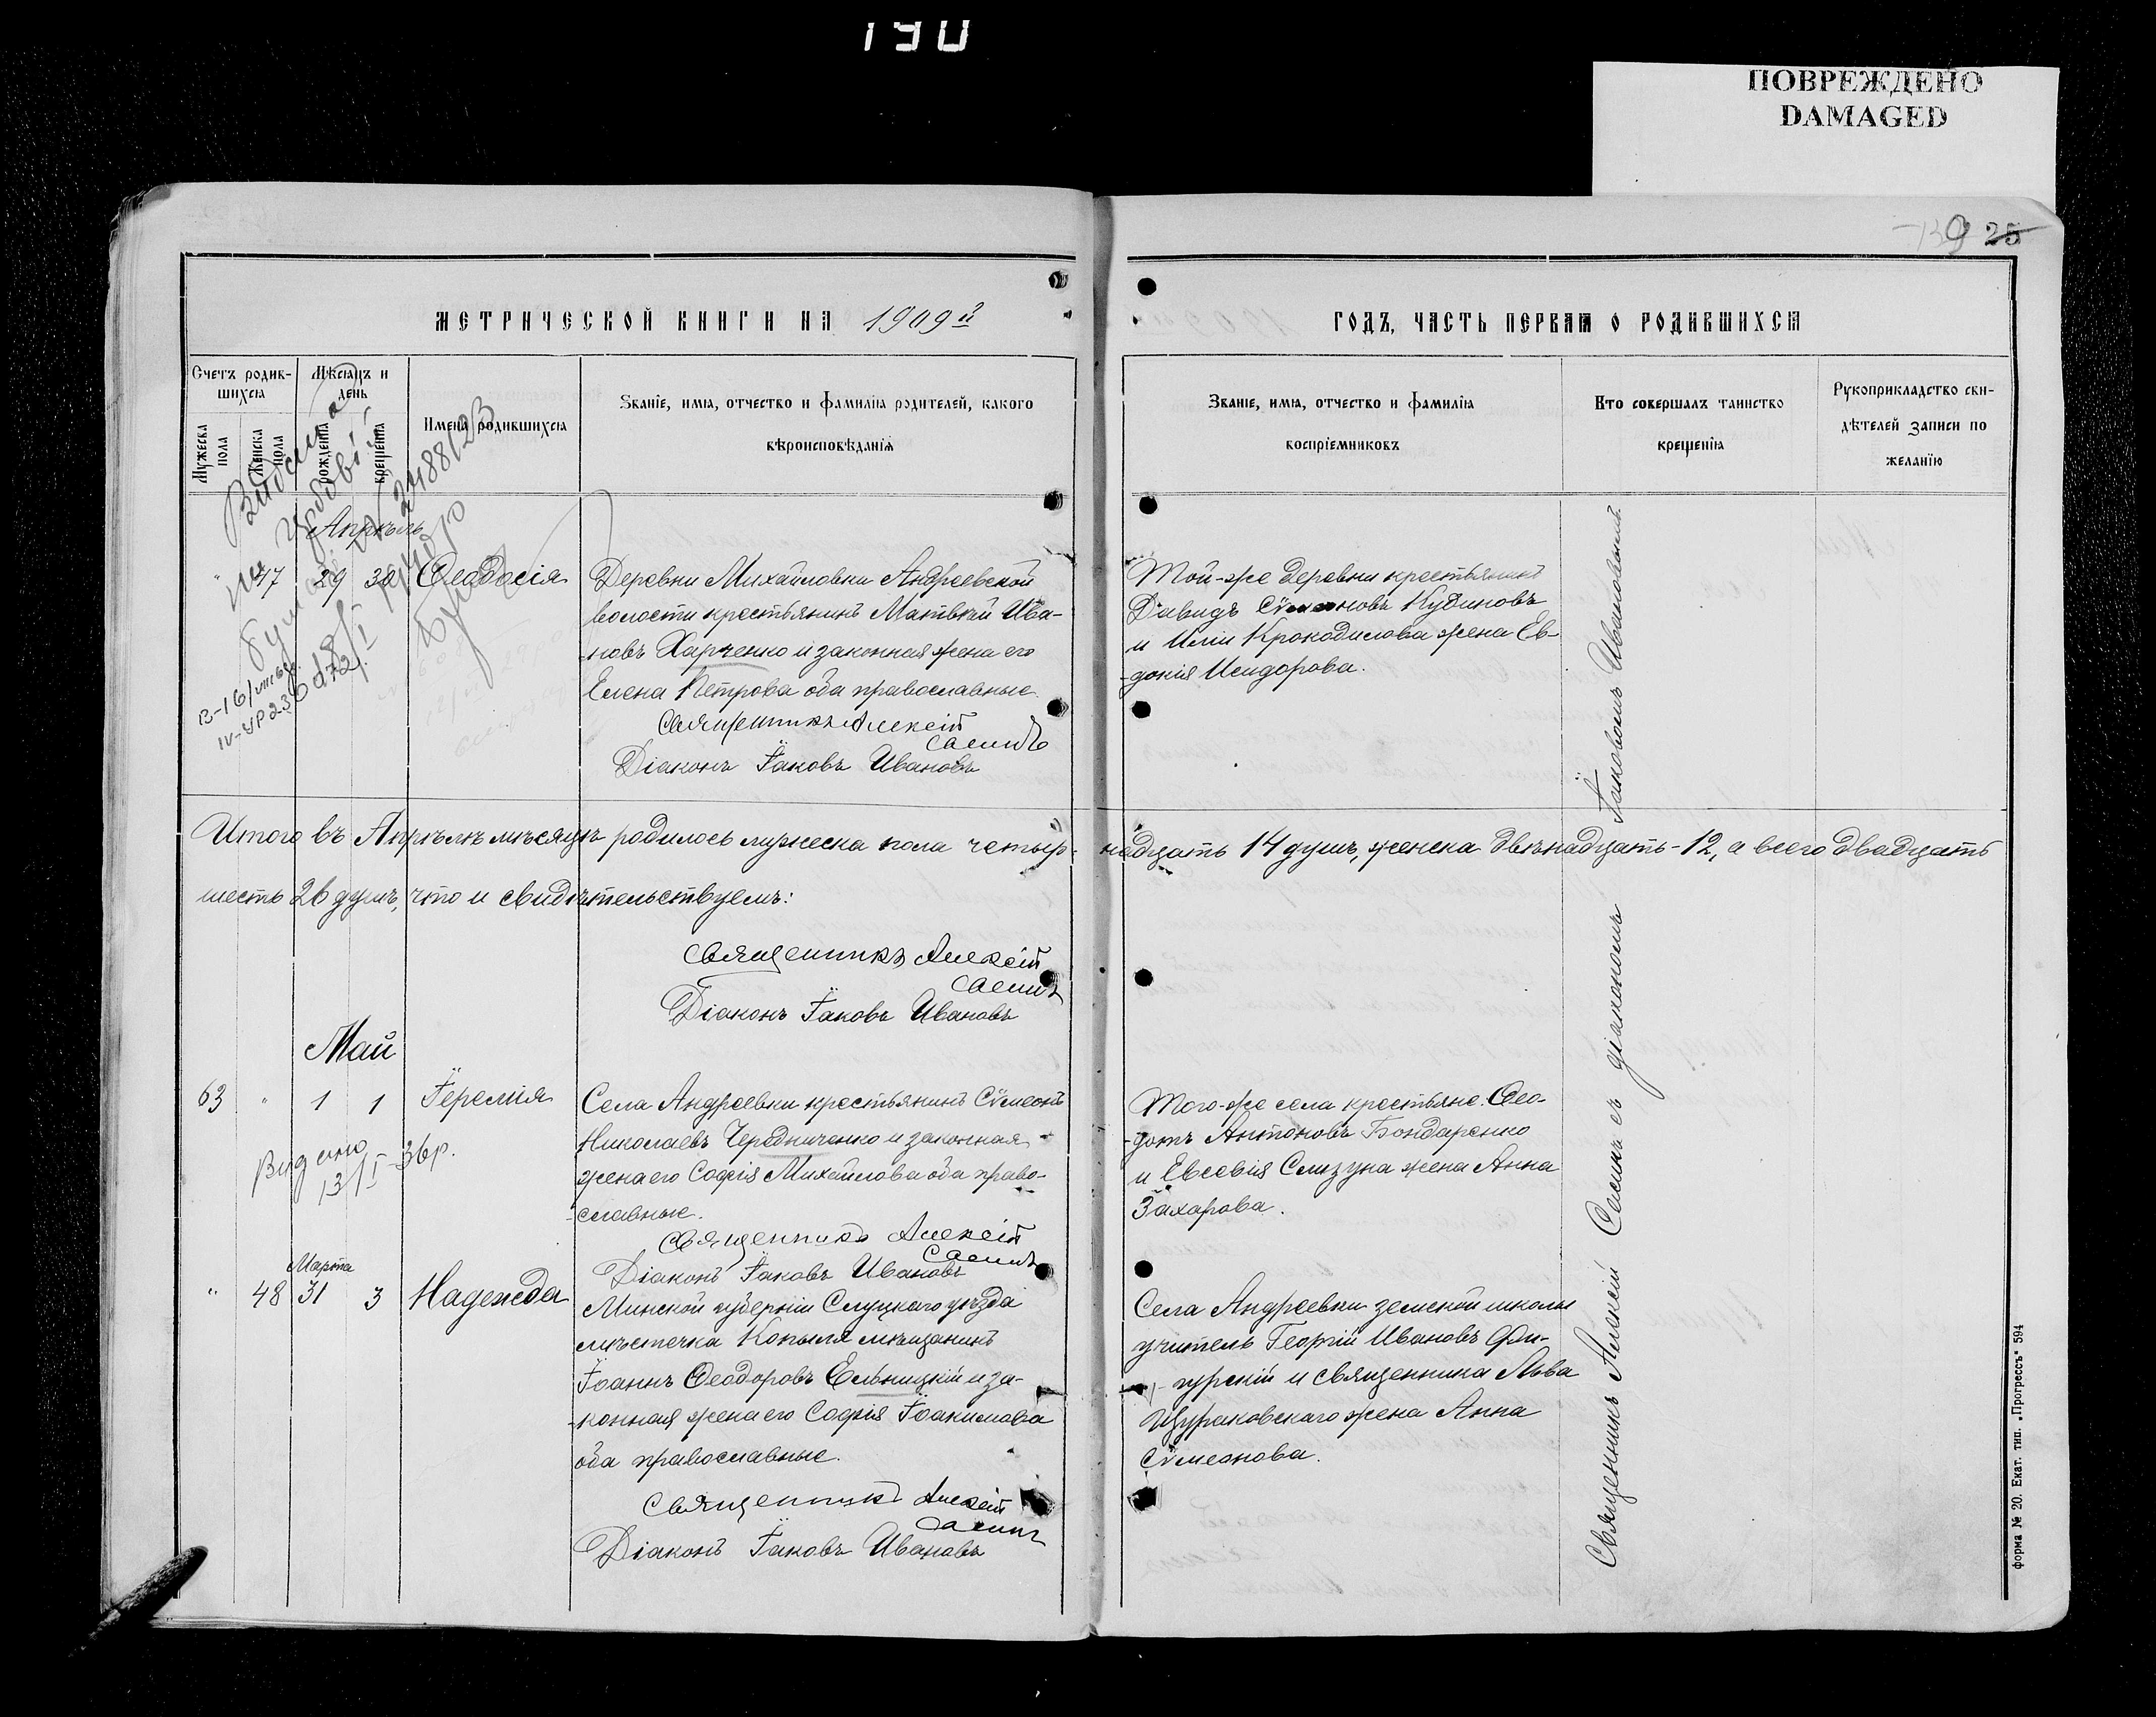 190
ПОВРЕЖДЕНО
DAMAGED
9 25
МЕТРИЧЕСКОЙ КНИГИ НА 1909й
ГОДЪ, ЧАСТЬ ПЕРВАЯ О РОДИВШИХСЯ
Счетъ родив-
шихся
Мужеска пола
Женска пола
Мѣсяцъ и
день
рожденія
крещенія
Имена родившихся
Званіе, имя, отчество и фамилія родителей, какого
вѣроисповѣданія
Званіе, имя, отчество и фамилія
воспріемниковъ
Кто совершалъ таинство
крещенія
Рукоприкладство сви-
дѣтелей записи по
желанію
Апрѣль
" 47 29 30 Ѳеодосія
Деревни Михайловки Андреевской
волости крестьянинъ Матвѣй Ива-
новъ Харченко и законная жена его
Елена Петрова оба православные.
Священникъ Алексій
Саенкъ
Діаконъ Іаковъ Ивановъ
Той-же деревни крестьянинъ
Давидъ Сѵмеоновъ Кудиновъ
и Иліи Крокодилова жена Ев-
-докія Исидорова.
Итого въ Апрѣлѣ мѣсяцѣ родилось мужеска пола четыр-надцать 14 душъ, женска двѣнадцать - 12, а всего двадцать
шесть 26 душъ, что и свидѣтельствуемъ:
Священникъ Алексій
Саенкъ
Діаконъ Іаковъ Ивановъ
Май
63 " 1 1 Іеремія
Видано
13/I - 36р.
Села Андреевки крестьянинъ Сѵмеонъ
Николаевъ Чередниченко и законная
жена его Софія Михайлова оба право-
-славные.
Священникъ Алексій
Саенкъ
Діаконъ Іаковъ Ивановъ
Того-же села крестьяне: Ѳео-
-дотъ Антоновъ Бондаренко
и Евсевія Слизуна жена Анна
Захарова.
Марта
" 48 31 3 Надежда
Минской губерніи Слуцкаго уѣзда
мѣстечка Копыля мѣщанинъ
Іоаннъ Ѳеодоровъ Ельницкій и за-
-конная жена его Софія Іоакимова
оба православные.
Священникъ Алексій
Саенкъ
Діаконъ Іаковъ Ивановъ
Села Андреевки земской школы
учитель Георгій Ивановъ
и священника Льва
жена Анна
Сѵмеонова.
Священникъ Алексій Саенкъ съ діакономъ Іаковомъ Ивановымъ
форма № 20. Екат. тип. „Прогрессъ“ 594